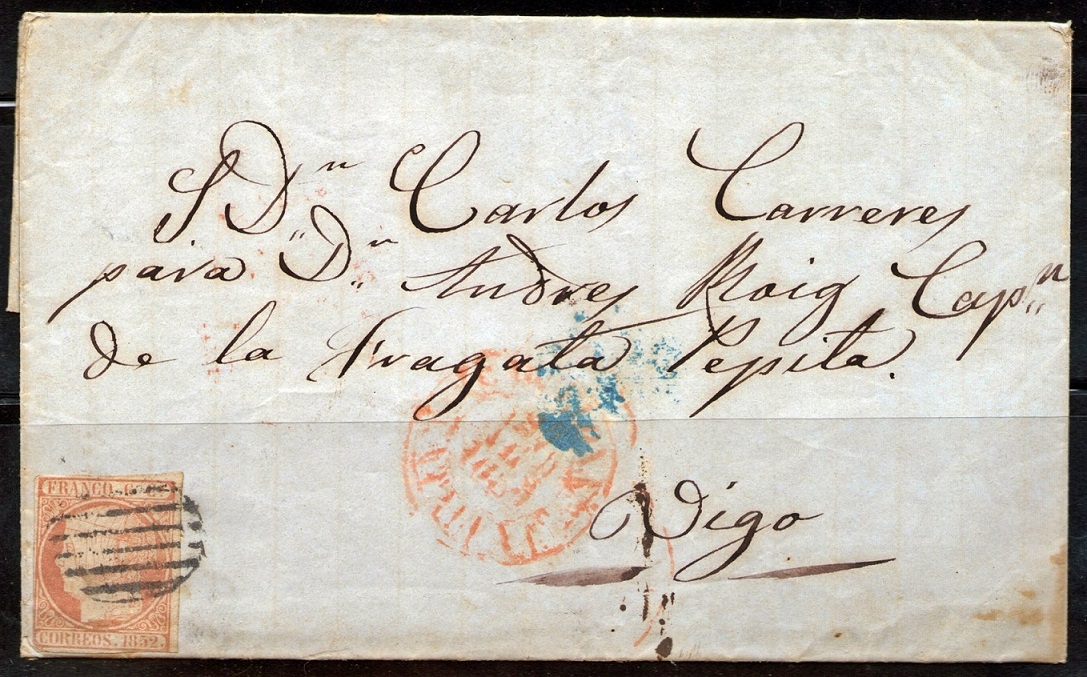 S Dn Carlos Carreres
para Dn Andres Roig Capn
de la Fragata Pepita.
Vigo
FRANCO
CORREOS. 1852.